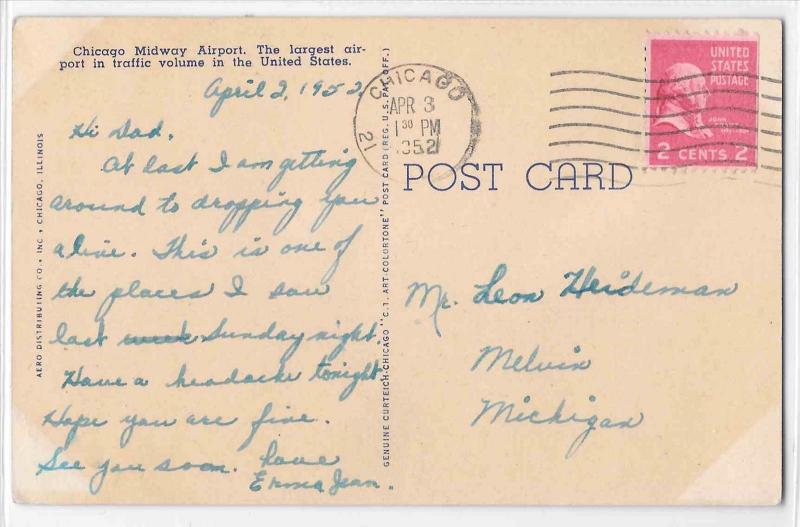 Chicago Midway Airport. The largest air-
port in traffic volume in the United States.
April 2, 1952
Hi Dad,
At last I am getting
around to dropping you
a line. This is one of
the places I saw
last week Sunday night.
Have a headache tonight.
Hope you are fine.
See you soon. Love
Erma Jean.
AERO DISTRIBUTING CO., INC., CHICAGO, ILLINOIS
GENUINE CURTEICH-CHICAGO "C.T. ART-COLORTONE" POST CARD (REG. U.S. PAT. OFF.)
CHICAGO
APR 3
1 30 PM
1952
21
UNITED
STATES
POSTAGE
JOHN
2 CENTS 2
POST CARD
Mr. Leon Heideman
Melvin
Michigan